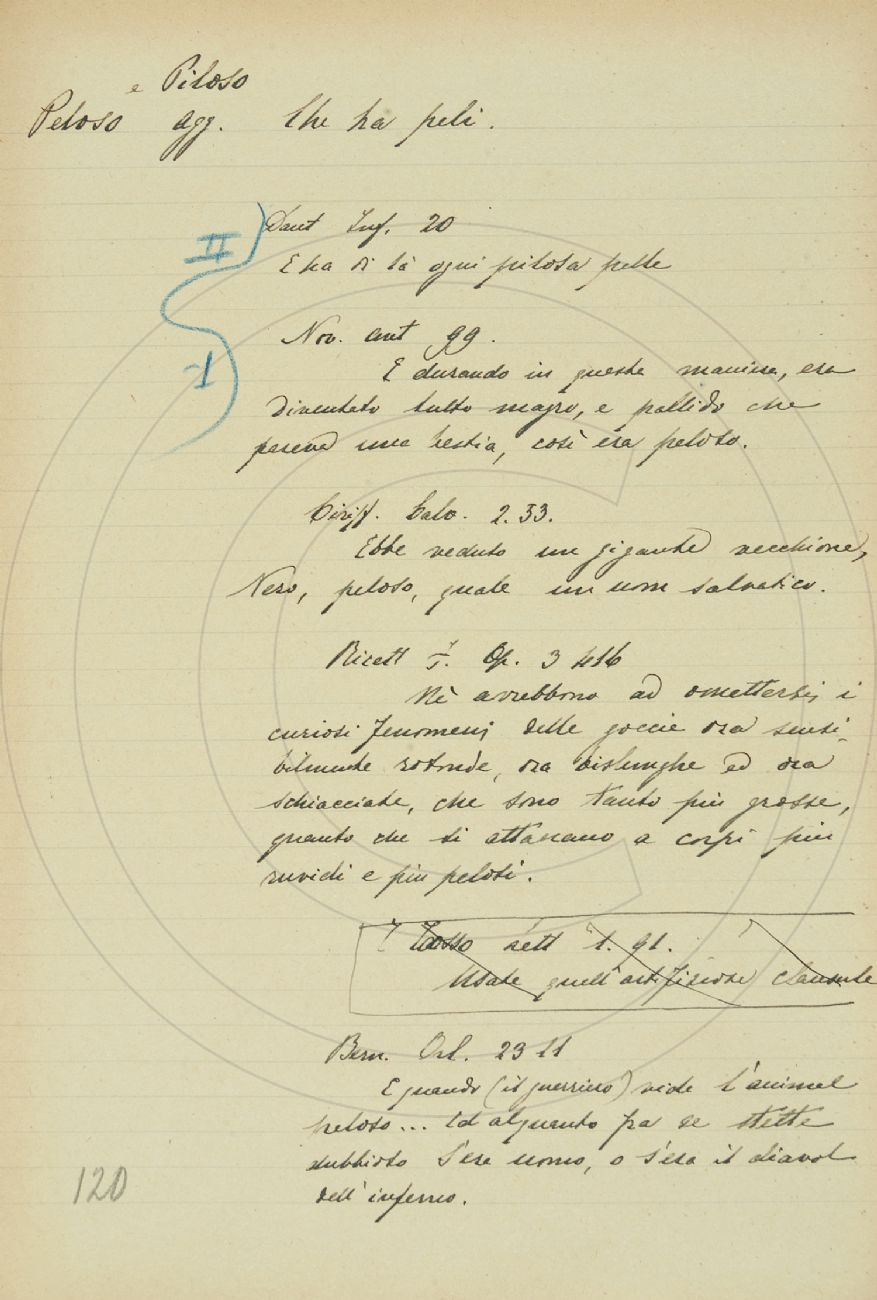 e Piloso
Peloso agg. Che ha peli.
Dant Inf. 20
II
E ha di là ogni pilosa pelle
Nov. ant 99.
I
E durando in questa maniera, era
diventato tutto magro, e pallido che
pareva una bestia, così era peloso.
Ciriff. Calv. 2.33.
Ebbe veduto un gigante vecchione,
Nero, peloso, quale un uom salvatico.
Ricett F. Op. 3 416
Nè avrebbono ad omettersi i
curiosi fenomeni delle goccie ora sensi-
bilmente rotonde, ora bislunghe ed ora
schiacciate, che sono tanto più grosse,
quanto che si attaccano a corpi più
ruvidi e più pelosi.
Tasso lett 1. 91.
Usate quell'artifiziose clausule
Bern. Orl. 23 11
E quando (il guerriero) vide l'animal
peloso... Ed alquanto fra se stette
dubbioso S'era uomo, o s'era il diavol
dell'inferno.
120